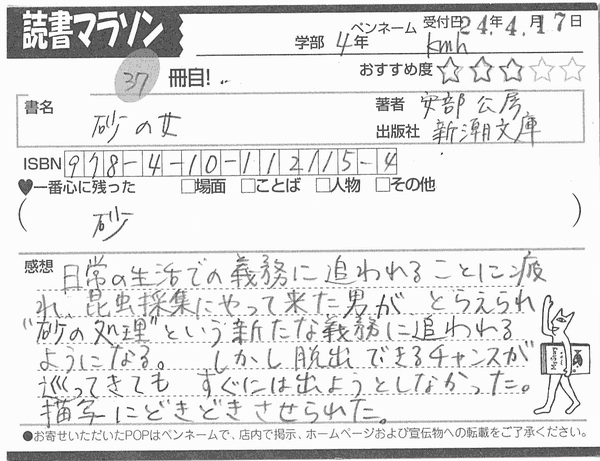 読書マラソン
学部 4年
ペンネーム kmh
受付日 24年4月17日
37 冊目!
おすすめ度 ☆☆☆☆☆
書名 砂の女
著者 安部公房
出版社 新潮文庫
ISBN 978-4-10-112115-4
♥一番心に残った □場面 □ことば □人物 □その他
( 砂 )
感想 日常の生活での義務に追われることに疲
れ、昆虫採集にやって来た男が とらえられ
"砂の処理"という新たな義務に追われる
ようになる。 しかし脱出できるチャンスが
巡ってきても すぐには出ようとしなかった。
描写にどきどきさせられた。
●お寄せいただいたPOPはペンネームで、店内で掲示、ホームページおよび宣伝物への転載をご了承ください。